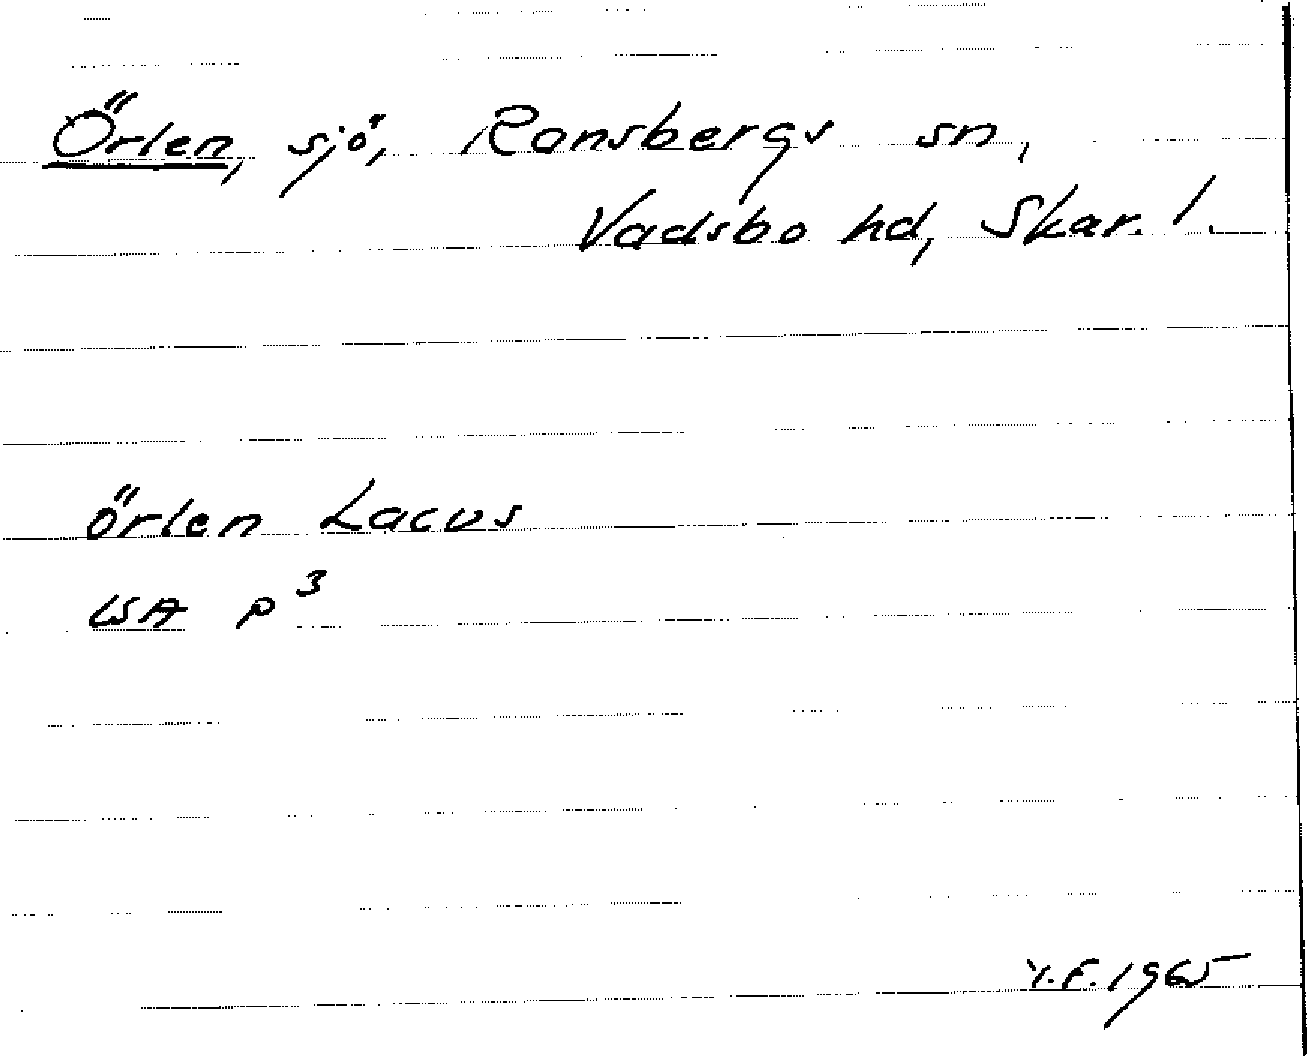 Örlen, sjö, Ransbergs sn,
Vadsbo hd, Skar. l.
örlen Lacus
LSA P³
Y.F. 1965